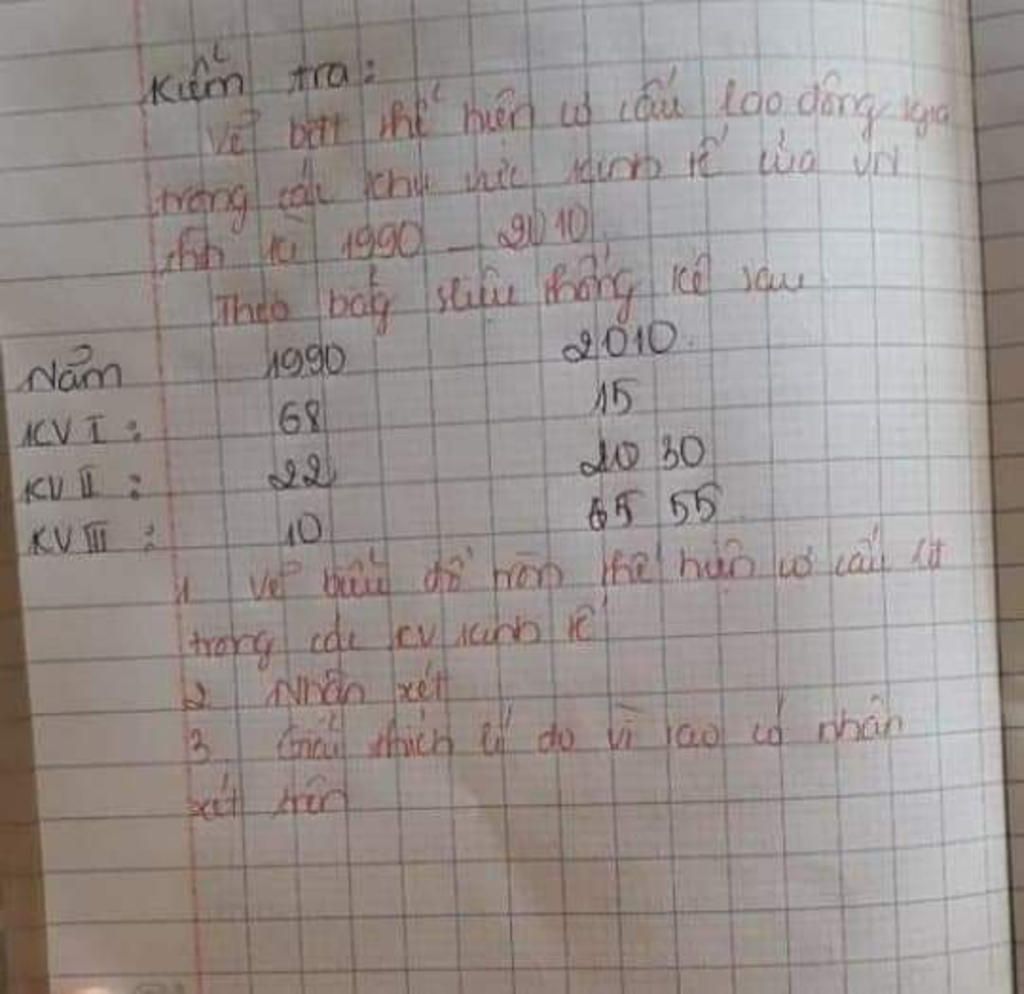 Kiểm tra:
Vẽ bđt thể hiện cơ cấu lao động
trong các khu vực kinh tế của VN
1990 – 2010
Theo bảng số liệu thống kê sau
Năm 1990 2010
KV I : 68 15
KV II : 22 30
KV III : 10 55
1 Vẽ biểu đồ tròn thể hiện cơ cấu lđ
trong các KV kinh tế
2 Nhận xét
3 Giải thích lí do vì sao có nhận
xét trên